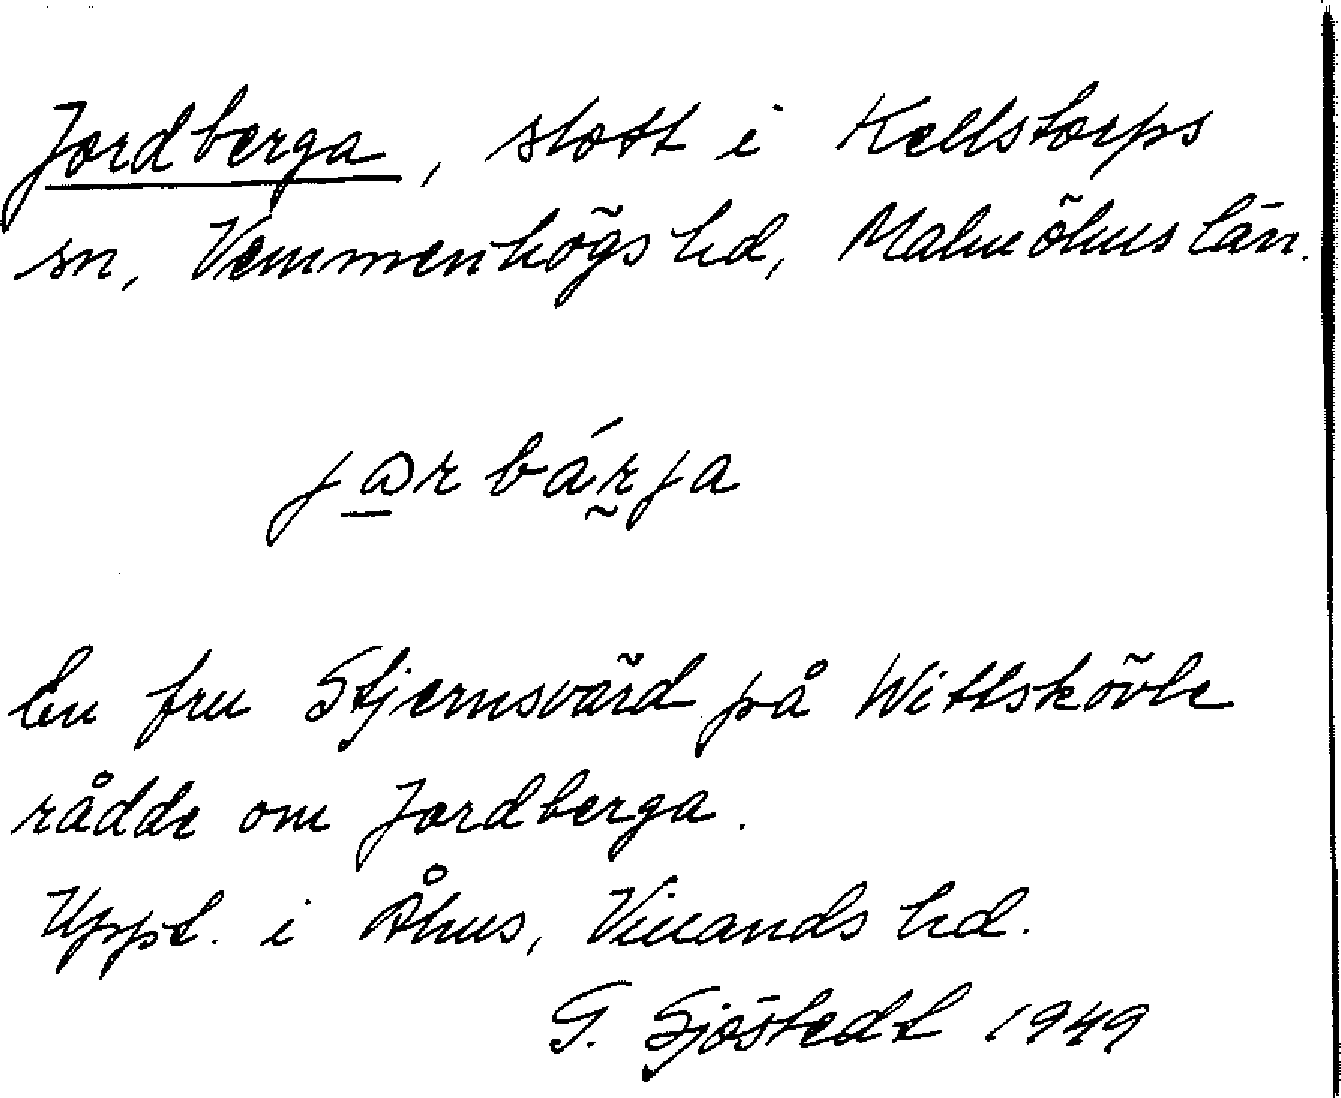 Jordberga, slott i Kellstorps
sn, Vemmenhögs hd, Malmöhus län.
jarbárja
En fru Stjernsvärd på Wittskövle
rådde om Jordberga.
Uppt. i Åhus, Villands hd.
G. Sjöstedt 1949